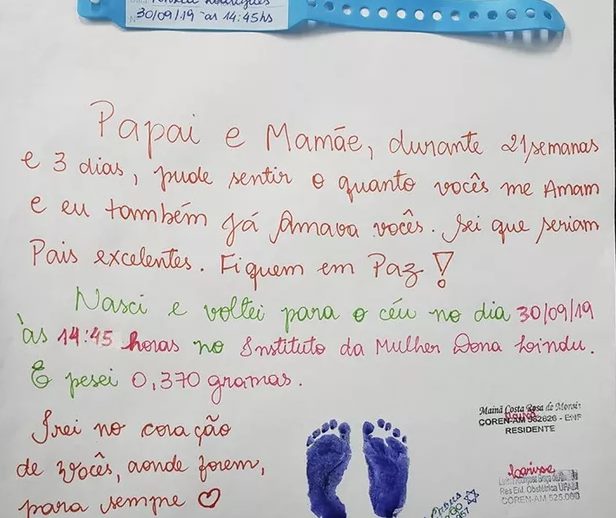 30/09/19 as 14:45hs
Papai e Mamãe, durante 21 semanas
e 3 dias, pude sentir o quanto vocês me Amam
e eu também já Amava vocês. Sei que seriam
Pais excelentes. Fiquem em Paz!
Nasci e voltei para o céu no dia 30/09/19
às 14:45 horas no Instituto da Mulher Dona Lindu.
E pesei 0,370 gramas.
Irei no coração
de vocês, aonde forem,
para sempre
Mainã Costa Rosa de Morais
COREN-AM - ENF
RESIDENTE
Larisse
Res Enf. Obstétrica UFAM
COREN-AM 525.000